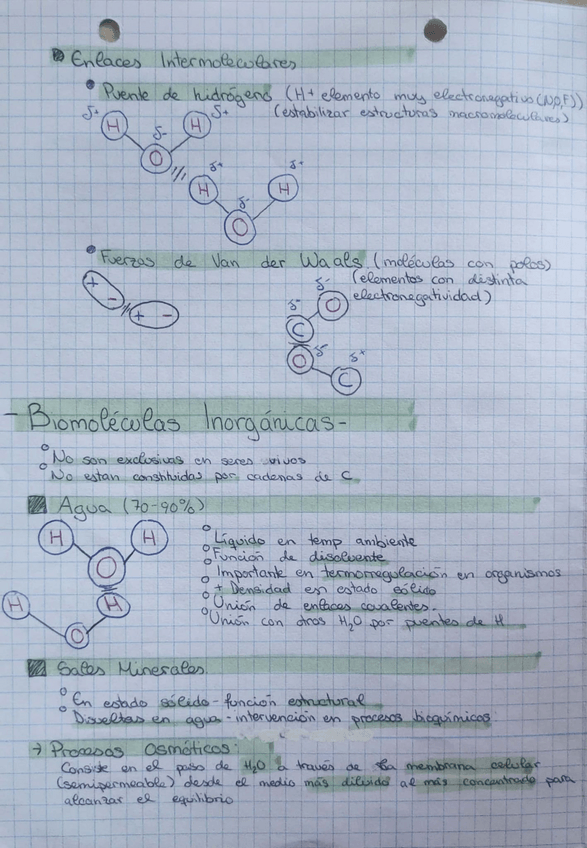 Enlaces Intermoleculares
Puente de hidrógeno (H + elemento muy electronegativo (N,O,F))
(estabilizar estructuras macromoleculares)
δ+ H δ- H δ+
O
H δ+ δ- H δ+
O
Fuerzas de Van der Waals (moléculas con polos)
(elementos con distinta
electronegatividad)
+ - + -
δ- O
δ- C
O δ- δ+
C
- Biomoléculas Inorgánicas -
No son exclusivas en seres vivos
No estan constituidas por cadenas de C
Agua (70-90%)
H H
O
H H
O
Líquido en temp ambiente
Función de disolvente
Importante en termorregulación en organismos
+ Densidad en estado sólido
Unión de enlaces covalentes.
Unión con otros H₂O por puentes de H
Sales Minerales.
En estado sólido - función estructural
Disueltas en agua - intervención en procesos bioquímicos
→ Procesos Osmóticos:
Consiste en el paso de H₂O a través de la membrana celular
(semipermeable) desde el medio más diluido al más concentrado para
alcanzar el equilibrio